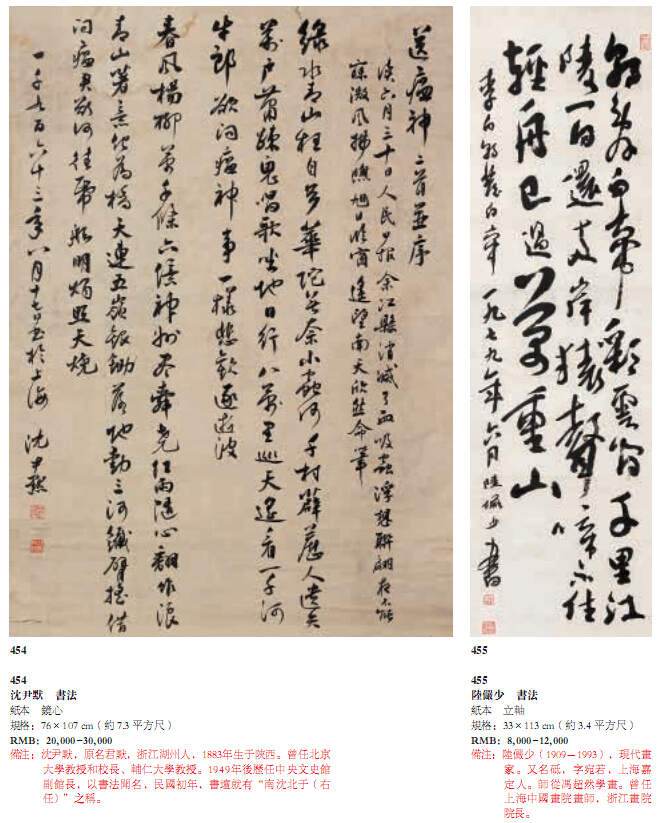 送瘟神 二首並序
讀六月三十日人民日報余江縣消滅了血吸蟲浮想聯翩夜不能
寐微風拂曉旭日臨窗遙望南天欣然命筆
綠水青山枉自多華陀無奈小蟲何千村薜荔人遺矢
萬戶蕭疏鬼唱歌坐地日行八萬里巡天遙看一千河
牛郎欲問瘟神事一樣悲歡逐逝波
春風楊柳萬千條六億神州盡舜堯紅雨隨心翻作浪
青山著意化為橋天連五嶺銀鋤落地動三河鐵臂搖借
問瘟君欲何往紙船明燭照天燒
一千九百六十三年八月十七日書於上海 沈尹默
454
454
沈尹默 書法
紙本 鏡心
規格：76×107 cm（約 7.3 平方尺）
RMB: 20,000–30,000
備注：沈尹默，原名君默，浙江湖州人，1883年生于陝西。曾任北京
大學教授和校長、輔仁大學教授。1949年後歷任中央文史館
副館長，以書法聞名，民國初年，書壇就有“南沈北于（右
任）”之稱。
朝辭白帝彩雲間千里江
陵一日還兩岸猿聲啼不住
輕舟已過萬重山
李白朝發白帝 一九七九年六月 陸儼少書
455
455
陸儼少 書法
紙本 立軸
規格：33×113 cm（約 3.4 平方尺）
RMB: 8,000–12,000
備注：陸儼少（1909－1993），現代畫
家。又名砥，字宛若，上海嘉
定人。師從馮超然學畫。曾任
上海中國畫院畫師，浙江畫院
院長。